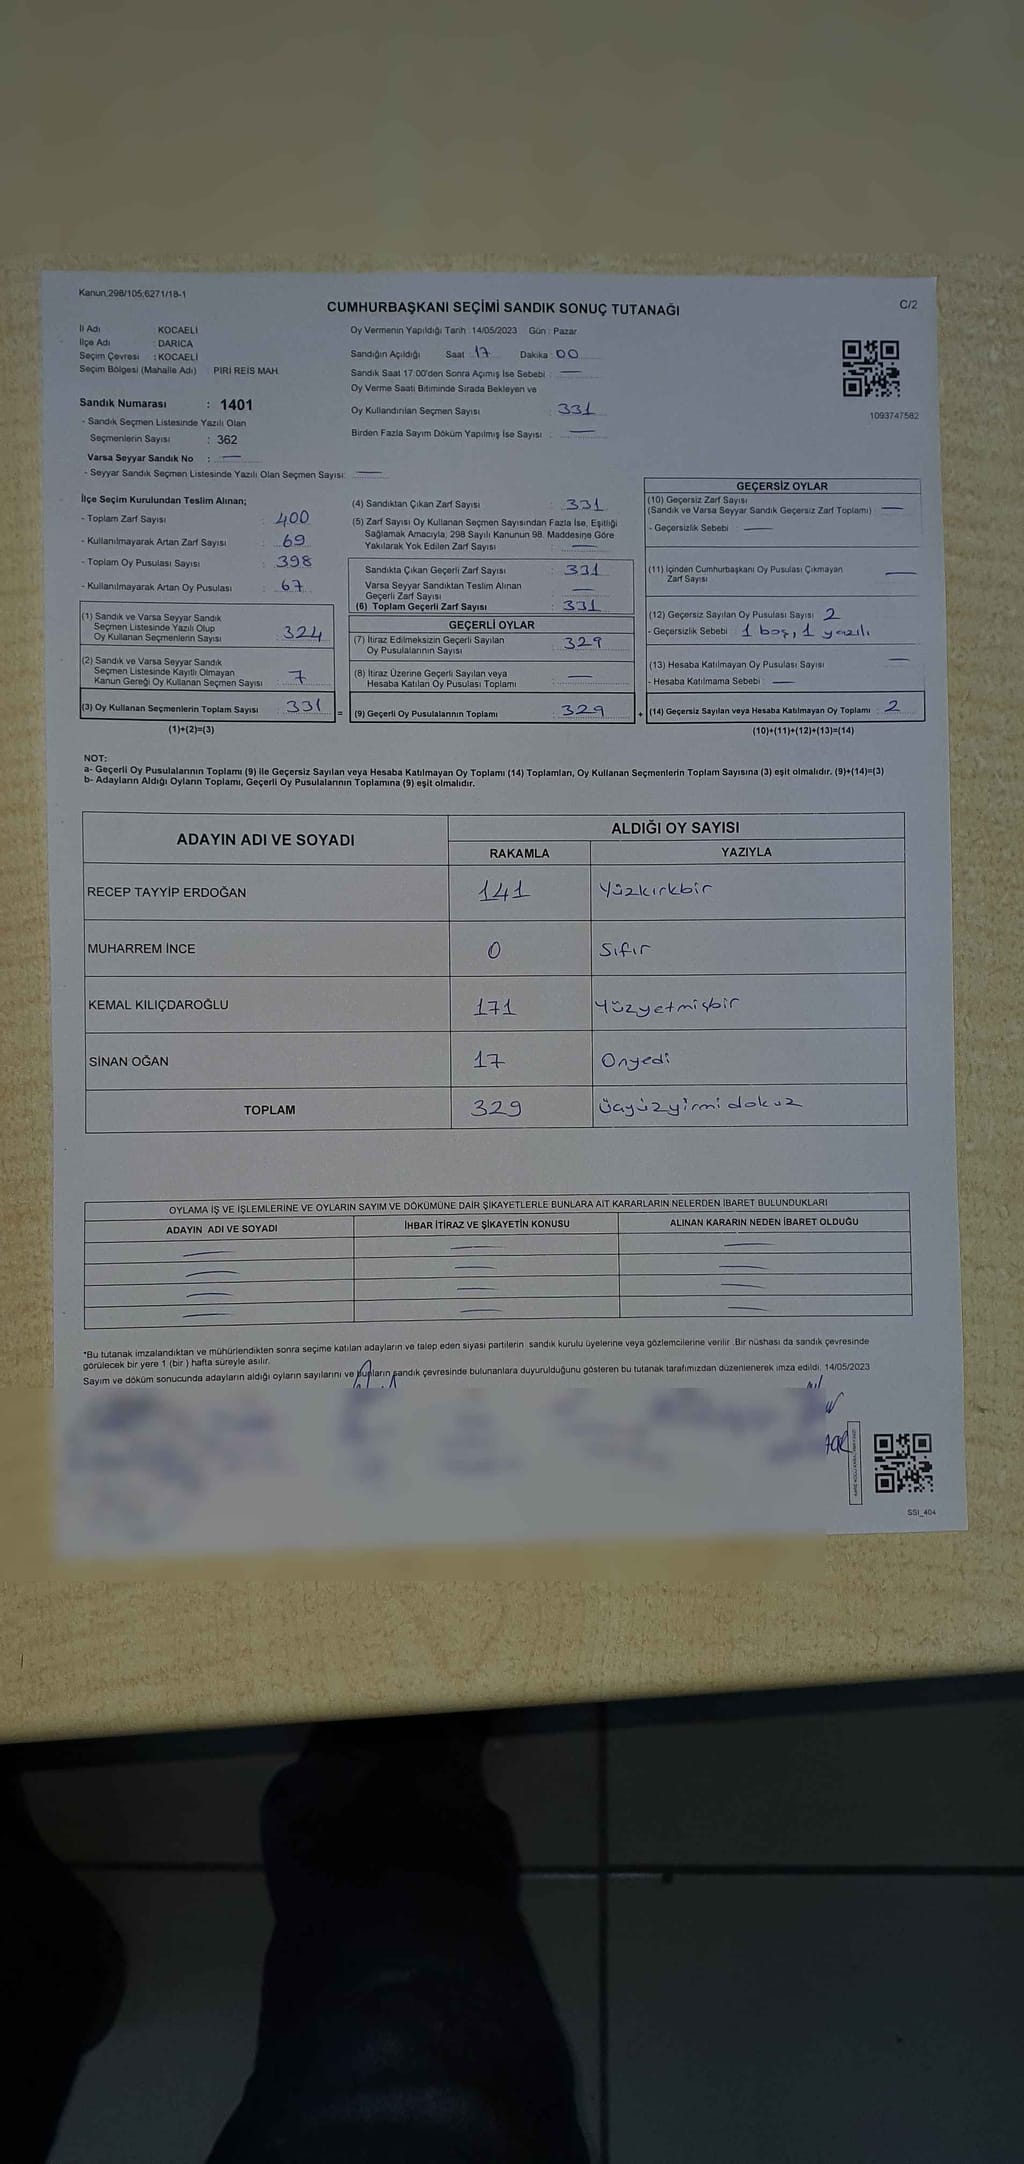 Kanun,298/105,6271/18-1
CUMHURBAŞKANI SEÇİMİ SANDIK SONUÇ TUTANAĞI
C/2
İl Adı : KOCAELİ
İlçe Adı : DARICA
Seçim Çevresi : KOCAELİ
Seçim Bölgesi (Mahalle Adı) PİRİ REİS MAH.
Sandık Numarası : 1401
- Sandık Seçmen Listesinde Yazılı Olan
Seçmenlerin Sayısı : 362
Varsa Seyyar Sandık No : —
- Seyyar Sandık Seçmen Listesinde Yazılı Olan Seçmen Sayısı: —
Oy Vermenin Yapıldığı Tarih : 14/05/2023 Gün : Pazar
Sandığın Açıldığı Saat 17 Dakika 00
Sandık Saat 17:00'den Sonra Açımış İse Sebebi : —
Oy Verme Saati Bitiminde Sırada Bekleyen ve
Oy Kullandırılan Seçmen Sayısı : 331
Birden Fazla Sayım Döküm Yapılmış İse Sayısı : —
1093747582
İlçe Seçim Kurulundan Teslim Alınan;
- Toplam Zarf Sayısı : 400
- Kullanılmayarak Artan Zarf Sayısı : 69
- Toplam Oy Pusulası Sayısı : 398
- Kullanılmayarak Artan Oy Pusulası : 67
(1) Sandık ve Varsa Seyyar Sandık
Seçmen Listesinde Yazılı Olup
Oy Kullanan Seçmenlerin Sayısı : 324
(2) Sandık ve Varsa Seyyar Sandık
Seçmen Listesinde Kayıtlı Olmayan
Kanun Gereği Oy Kullanan Seçmen Sayısı : 7
(3) Oy Kullanan Seçmenlerin Toplam Sayısı : 331
(1)+(2)=(3)
(4) Sandıktan Çıkan Zarf Sayısı : 331
(5) Zarf Sayısı Oy Kullanan Seçmen Sayısından Fazla İse, Eşitliği
Sağlamak Amacıyla, 298 Sayılı Kanunun 98. Maddesine Göre
Yakılarak Yok Edilen Zarf Sayısı : —
Sandıkta Çıkan Geçerli Zarf Sayısı : 331
Varsa Seyyar Sandıktan Teslim Alınan
Geçerli Zarf Sayısı : —
(6) Toplam Geçerli Zarf Sayısı : 331
GEÇERLİ OYLAR
(7) İtiraz Edilmeksizin Geçerli Sayılan
Oy Pusulalarının Sayısı : 329
(8) İtiraz Üzerine Geçerli Sayılan veya
Hesaba Katılan Oy Pusulası Toplamı : —
= (9) Geçerli Oy Pusulalarının Toplamı : 329
GEÇERSİZ OYLAR
(10) Geçersiz Zarf Sayısı
(Sandık ve Varsa Seyyar Sandık Geçersiz Zarf Toplamı) : —
- Geçersizlik Sebebi : —
(11) İçinden Cumhurbaşkanı Oy Pusulası Çıkmayan
Zarf Sayısı : —
(12) Geçersiz Sayılan Oy Pusulası Sayısı : 2
- Geçersizlik Sebebi : 1 boş, 1 yazılı
(13) Hesaba Katılmayan Oy Pusulası Sayısı : —
- Hesaba Katılmama Sebebi : —
+ (14) Geçersiz Sayılan veya Hesaba Katılmayan Oy Toplamı : 2
(10)+(11)+(12)+(13)=(14)
NOT:
a- Geçerli Oy Pusulalarının Toplamı (9) ile Geçersiz Sayılan veya Hesaba Katılmayan Oy Toplamı (14) Toplamları, Oy Kullanan Seçmenlerin Toplam Sayısına (3) eşit olmalıdır. (9)+(14)=(3)
b- Adayların Aldığı Oyların Toplamı, Geçerli Oy Pusulalarının Toplamına (9) eşit olmalıdır.
ADAYIN ADI VE SOYADI
ALDIĞI OY SAYISI
RAKAMLA YAZIYLA
RECEP TAYYİP ERDOĞAN 141 Yüzkırkbir
MUHARREM İNCE 0 Sıfır
KEMAL KILIÇDAROĞLU 171 Yüzyetmişbir
SİNAN OĞAN 17 Onyedi
TOPLAM 329 üçyüzyirmi dokuz
OYLAMA İŞ VE İŞLEMLERİNE VE OYLARIN SAYIM VE DÖKÜMÜNE DAİR ŞİKAYETLERLE BUNLARA AİT KARARLARIN NELERDEN İBARET BULUNDUKLARI
ADAYIN ADI VE SOYADI İHBAR İTİRAZ VE ŞİKAYETİN KONUSU ALINAN KARARIN NEDEN İBARET OLDUĞU
*Bu tutanak imzalandıktan ve mühürlendikten sonra seçime katılan adayların ve talep eden siyasi partilerin sandık kurulu üyelerine veya gözlemcilerine verilir. Bir nüshası da sandık çevresinde
görülecek bir yere 1 (bir ) hafta süreyle asılır.
Sayım ve döküm sonucunda adayların aldığı oyların sayılarını ve bunların sandık çevresinde bulunanlara duyurulduğunu gösteren bu tutanak tarafımızdan düzenlenerek imza edildi. 14/05/2023
SSI_404